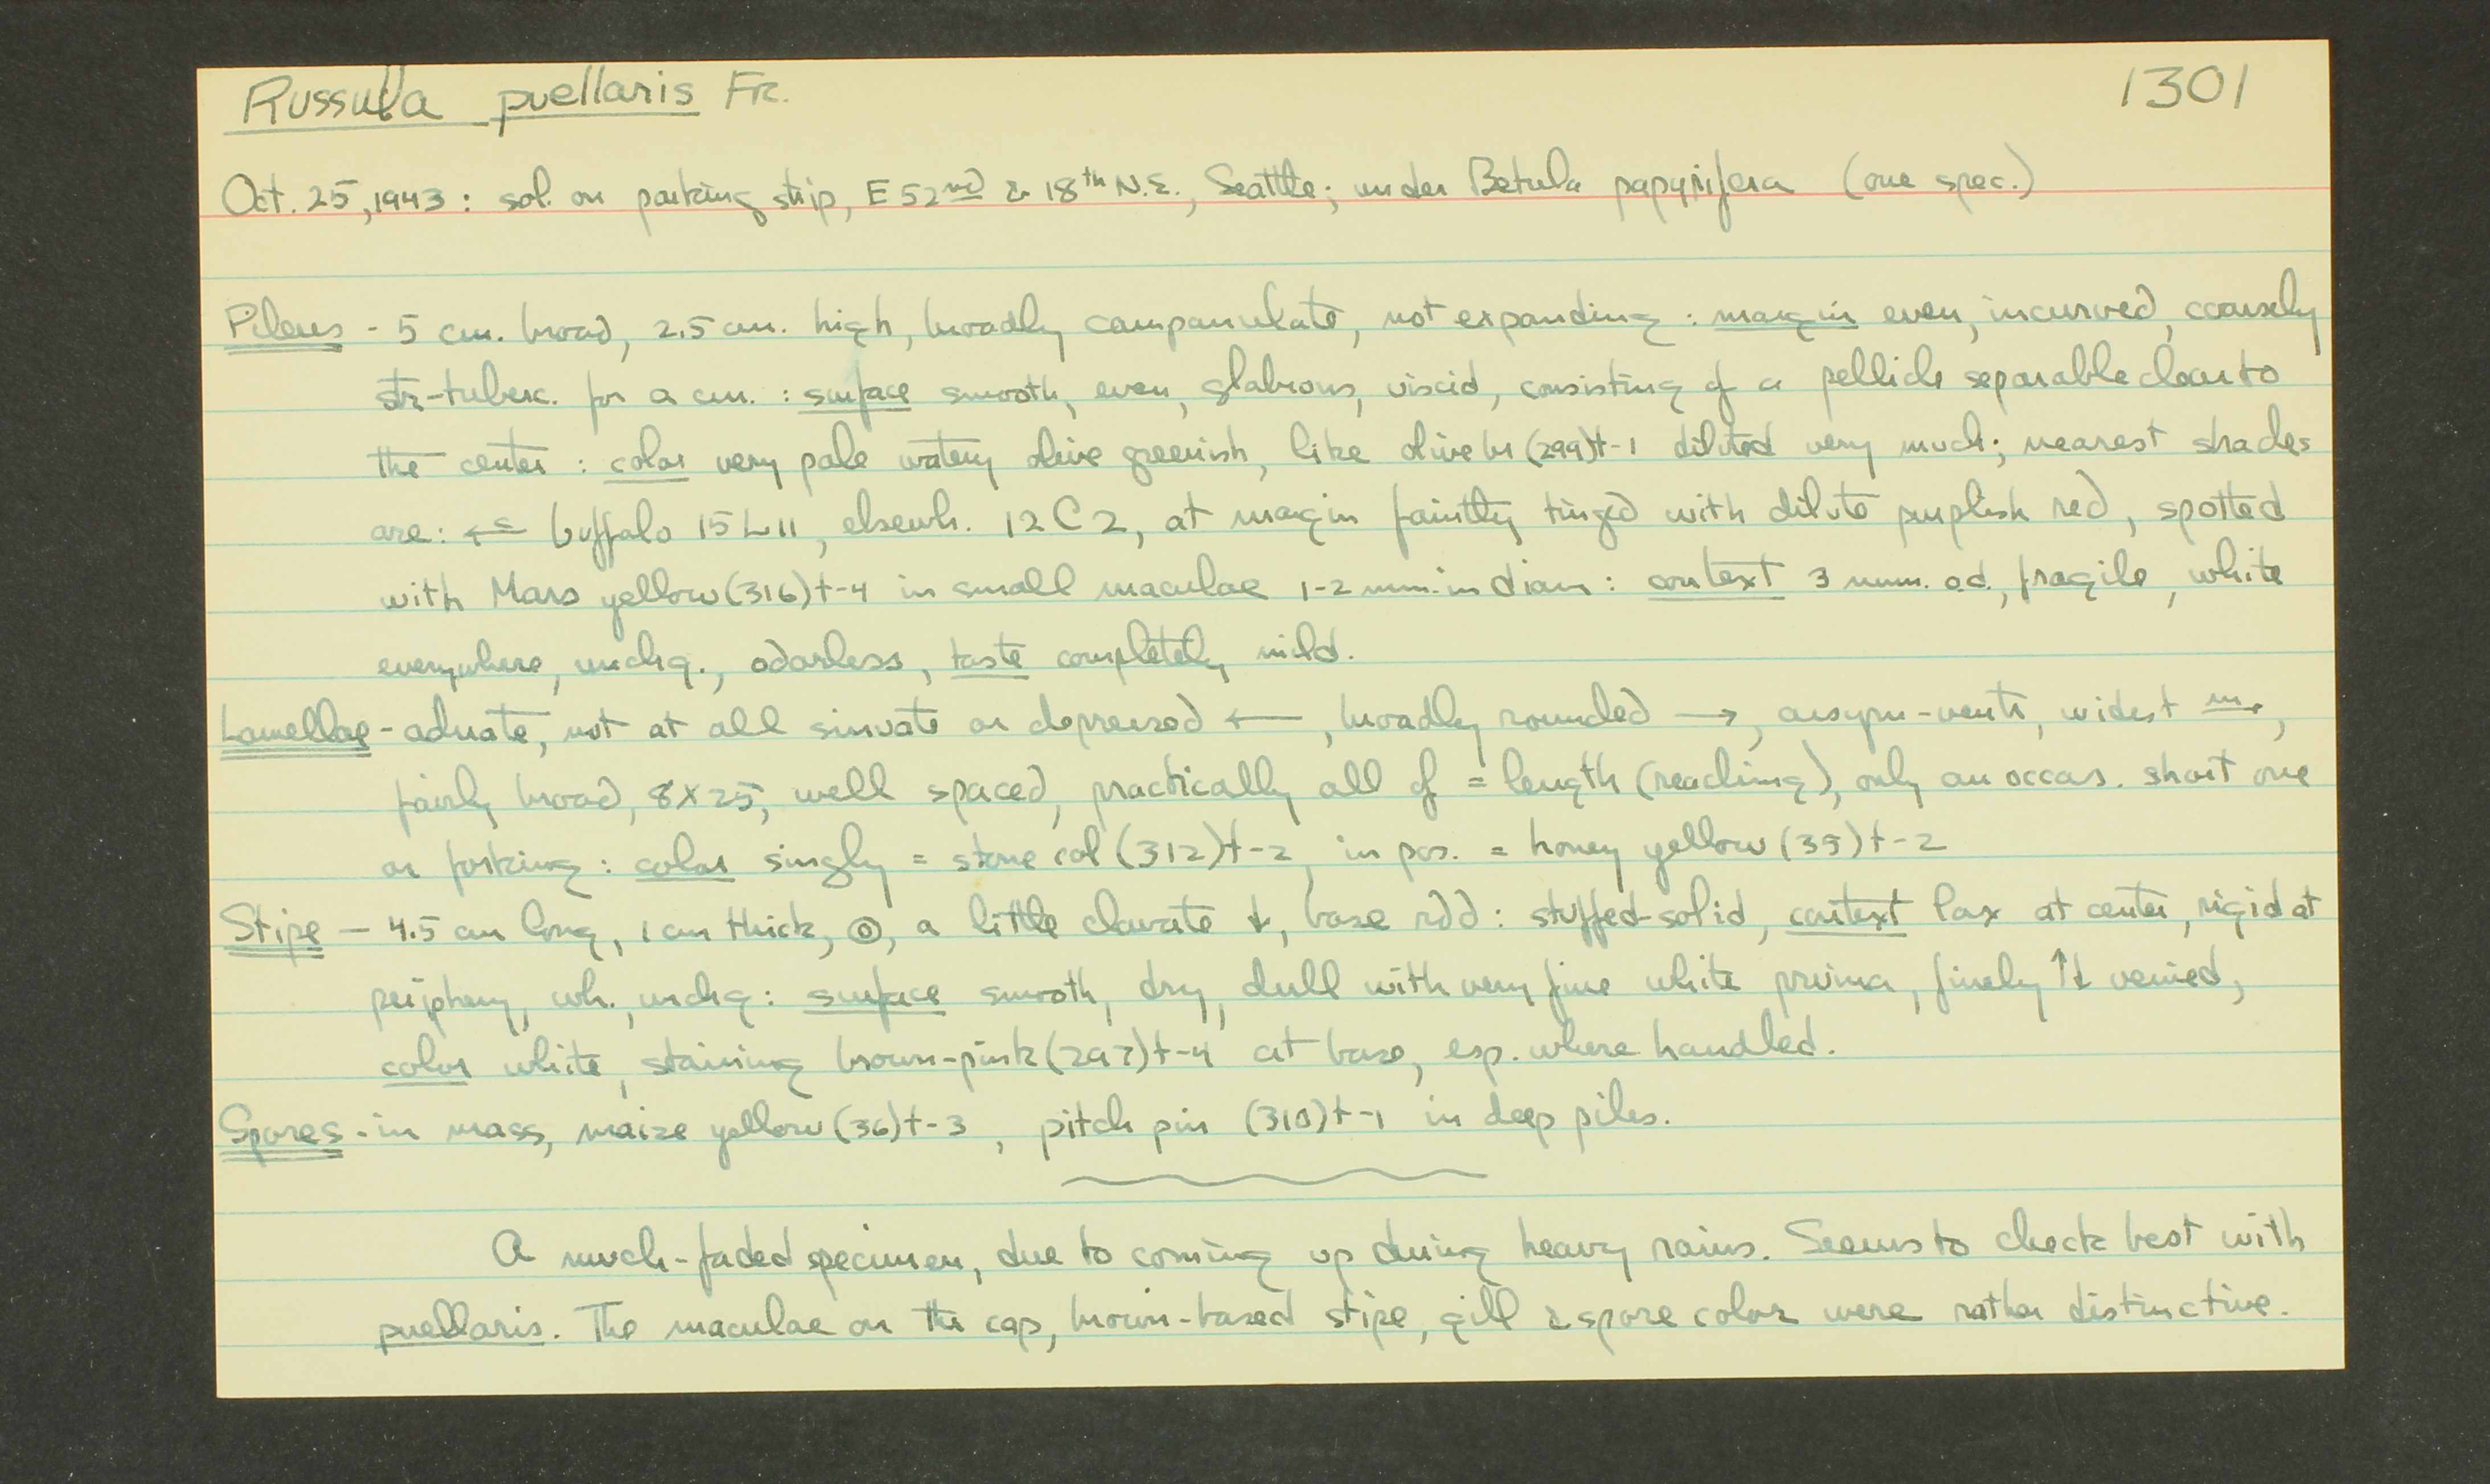 Russula puellaris Fr. 1301
Oct. 25, 1943: sol. on parking strip, E 52nd & 18th N.E., Seattle; under Betula papyrifera (one spec.)
Pileus - 5 cm. broad, 2.5 cm. high, broadly campanulate, not expanding: margin even, incurved, coarsely
str-tuberc. for a cm. : surface smooth, even, glabrous, viscid, consisting of a pellicle separable close to
the center : color very pale watery olive greenish, like olive br (299)t-1 diluted very much; nearest shades
are: buffalo 15L11, elsewh. 12C2, at margin faintly tinged with dilute purplish red, spotted
with Mars yellow (316)t-4 in small maculae 1-2 mm. in diam: context 3 mm. fragile, white
everywhere, unchg., odorless, taste completely mild.
Lamellae - adnate, not at all sinuate or depressed ←, broadly rounded →, widest
fairly broad, 8x25, well spaced, practically all of = length (reaching), only an occas. short one
or forking : color singly = stone col (312)t-2, in pos. = honey yellow (35)t-2
Stipe - 4.5 cm long, 1 cm thick, ◎, a little clavate ↓, base rdd: stuffed-solid, context lax at center, rigid at
periphery, wh., unchg: surface smooth, dry, dull with very fine white pruina, finely ↑↓ veined,
color white, staining brown-pink (297)t-4 at base, esp. where handled.
Spores - in mass, maize yellow (36)t-3, pitch pin (310)t-1 in deep piles.
A much-faded specimen, due to coming up during heavy rains. Seems to check best with
puellaris. The maculae on the cap, brown-based stipe, gill & spore color were rather distinctive.